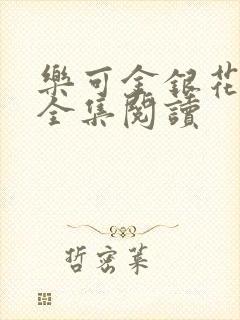 樂可金銀花
全集閱讀
哲密葉